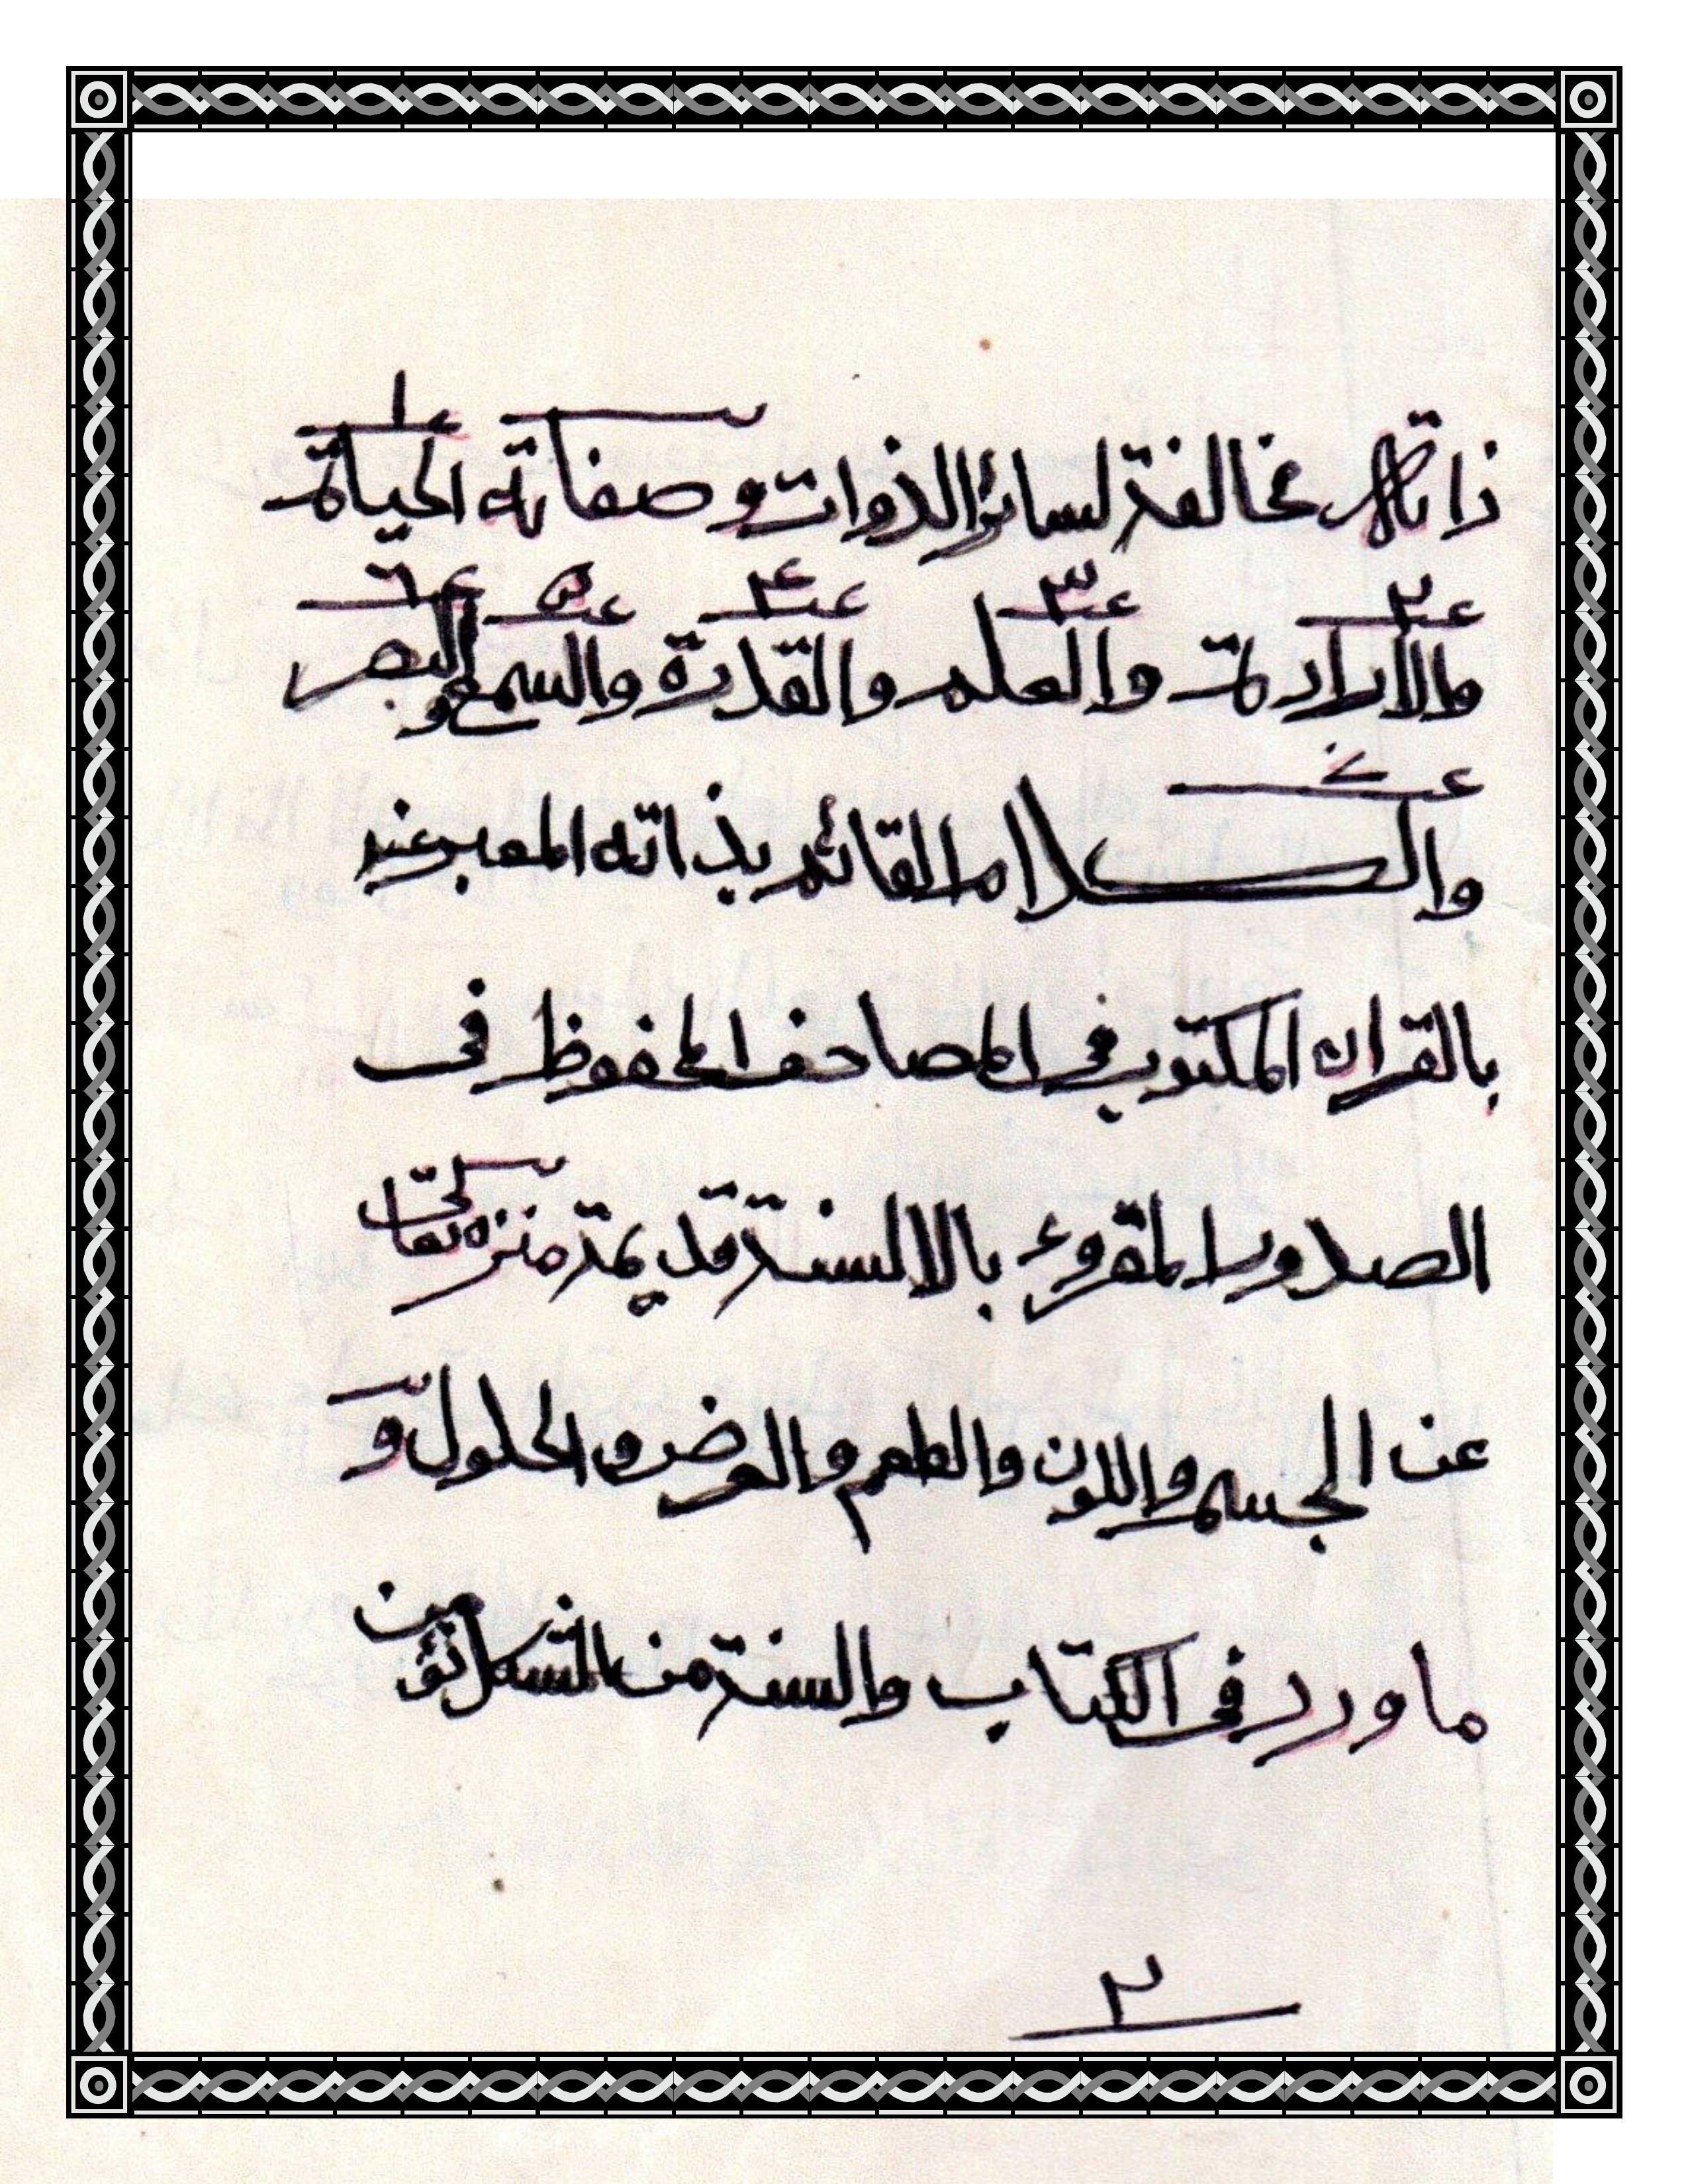 ذاته مخالفة لسائر الذوات و صفاته الحياة
١
والارادة والعلم والقدرة والسمع والبصر
٢ ٣ ٤ ٥ ٦
والكلام القائم بذاته المعبر عنه
٧
بالقران المكتوب في المصاحف المحفوظ فى
الصدور المقروء بالالسنة قديمة منزه تعالى
عن الجسم واللون والطعم والعرض والحلول و
ما ورد فى الكتاب والسنة من المشكل نؤمن
٢